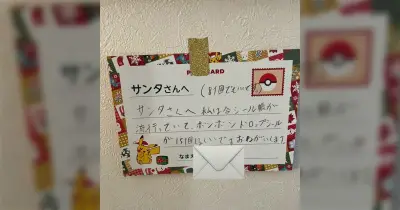 POSTCARD
サンタさんへ
サンタさんへ 私は今シール帳が
流行っていて、ボンボンドロップシール
がほしいです おねがいします
なまえ